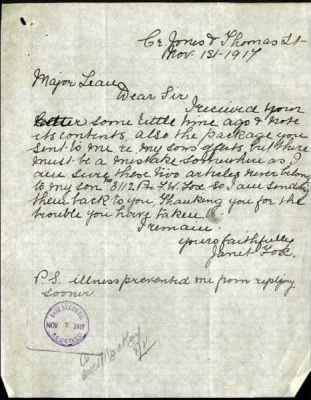 Cr Jones & Thomas St
Nov. 1st - 1917
Major Lean
Dear Sir
I received your
letter some little time ago & note
its contents, also the package you
sent to me re my sons effects, but there
must be a mistake somewhere as I
am sure those two articles never belong
to my son 3112 Pte F.W. Fox so I am sending
them back to you. Thanking you for the
trouble you have taken
I remain
yours faithfully
Janet Fox.
P.S. illness prevented me from replying
sooner
BASE RECORDS
NOV 7 1917
RECEIVED